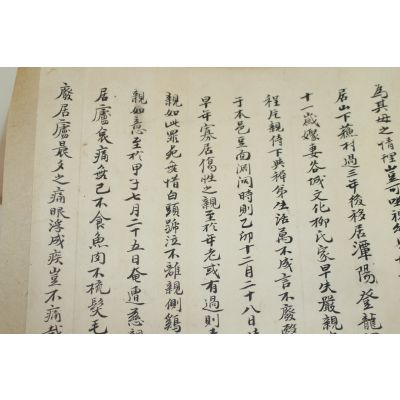 為其母之情理豈可
居山下蕉村過三年後移居潭陽登龍
十一歲娶妻谷城文化柳氏家早失嚴親
程庄親侍下與稚弟生活萬不成言不廢
于本邑豆南洞洞時則乙卯十二月二十八日
早年寡居傷性之親至於年老或有過則
親如此罪死無惜白頭號泣不離親側鷄
親如意至於甲子七月二十五日奄遭慈
居廬哀痛無已不食魚肉不梳髮毛
廢居廬晨夕之痛眼浮成疾豈不痛哉